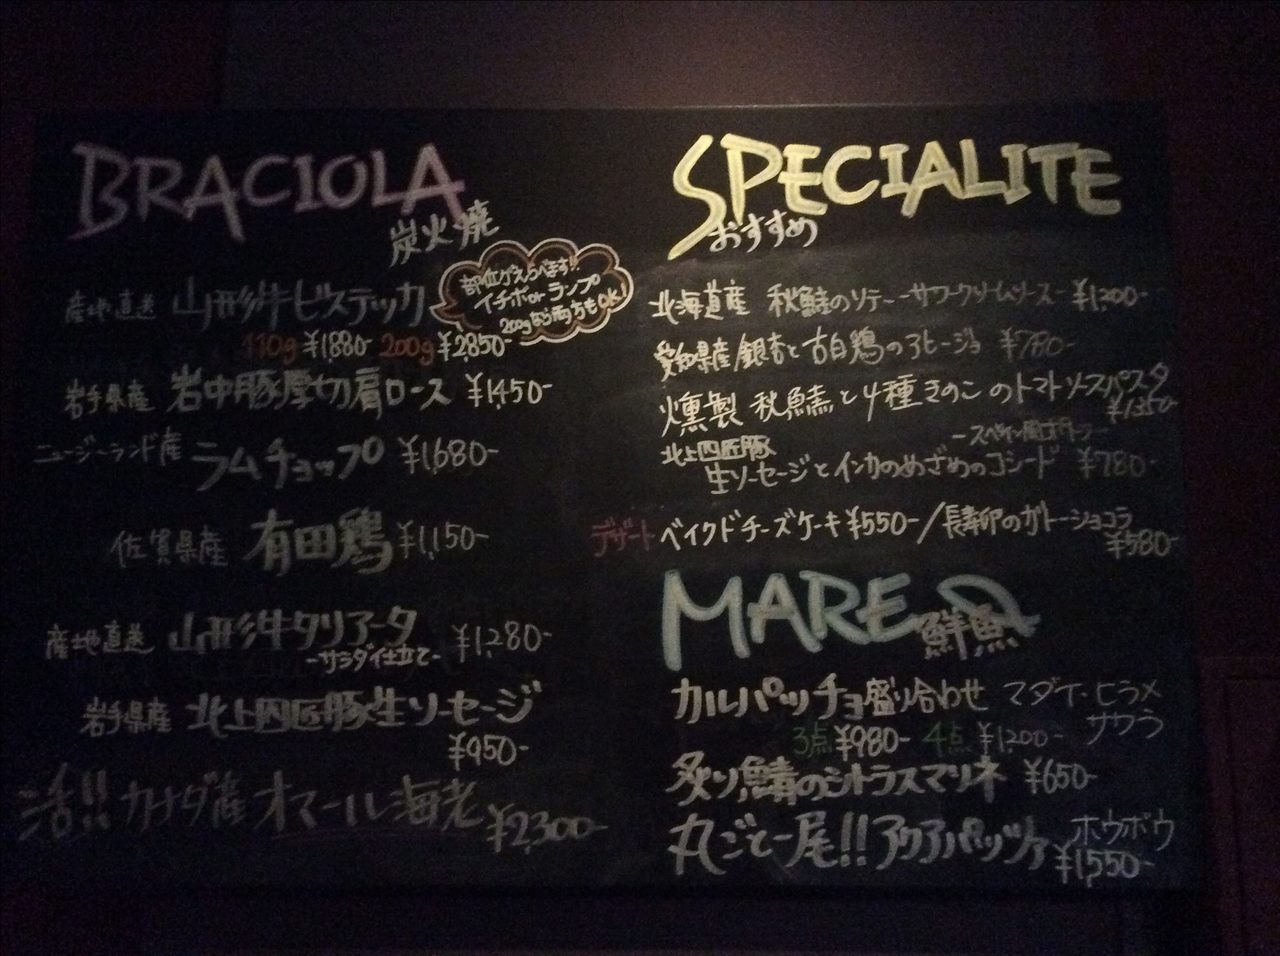 BRACIOLA
炭火焼
部位がえらべます!!
イチボorランプ
200gなら両方もOK!
産地直送 山形牛ビステッカ
110g ¥1880- 200g ¥2850-
岩手県産 岩中豚厚切肩ロース ¥1,450-
ニュージーランド産 ラムチョップ ¥1,680-
佐賀県産 有田鶏 ¥1,150-
産地直送 山形牛タリアータ ¥1,280-
-サラダ仕立て-
岩手県産 北上四匠豚生ソーセージ
¥950-
活!! カナダ産 オマール海老 ¥2,300-
SPECIALITE
おすすめ
北海道産 秋鮭のソテー サワークリームソース ¥1,200-
愛知県産銀杏と古白鶏のアヒージョ ¥780-
燻製 秋鮭と4種きのこのトマトソースパスタ
北上四匠豚
生ソーセージとインカのめざめのコシード ¥780-
デザート ベイクドチーズケーキ ¥550-/長寿卵のガトーショコラ
¥580-
MARE
鮮魚
カルパッチョ盛り合わせ マダイ・ヒラメ
サワラ
3点 ¥980- 4点 ¥1,200-
炙り鯖のシトラスマリネ ¥650-
丸ごと一尾!! アクアパッツァ ホウボウ
¥1,550-